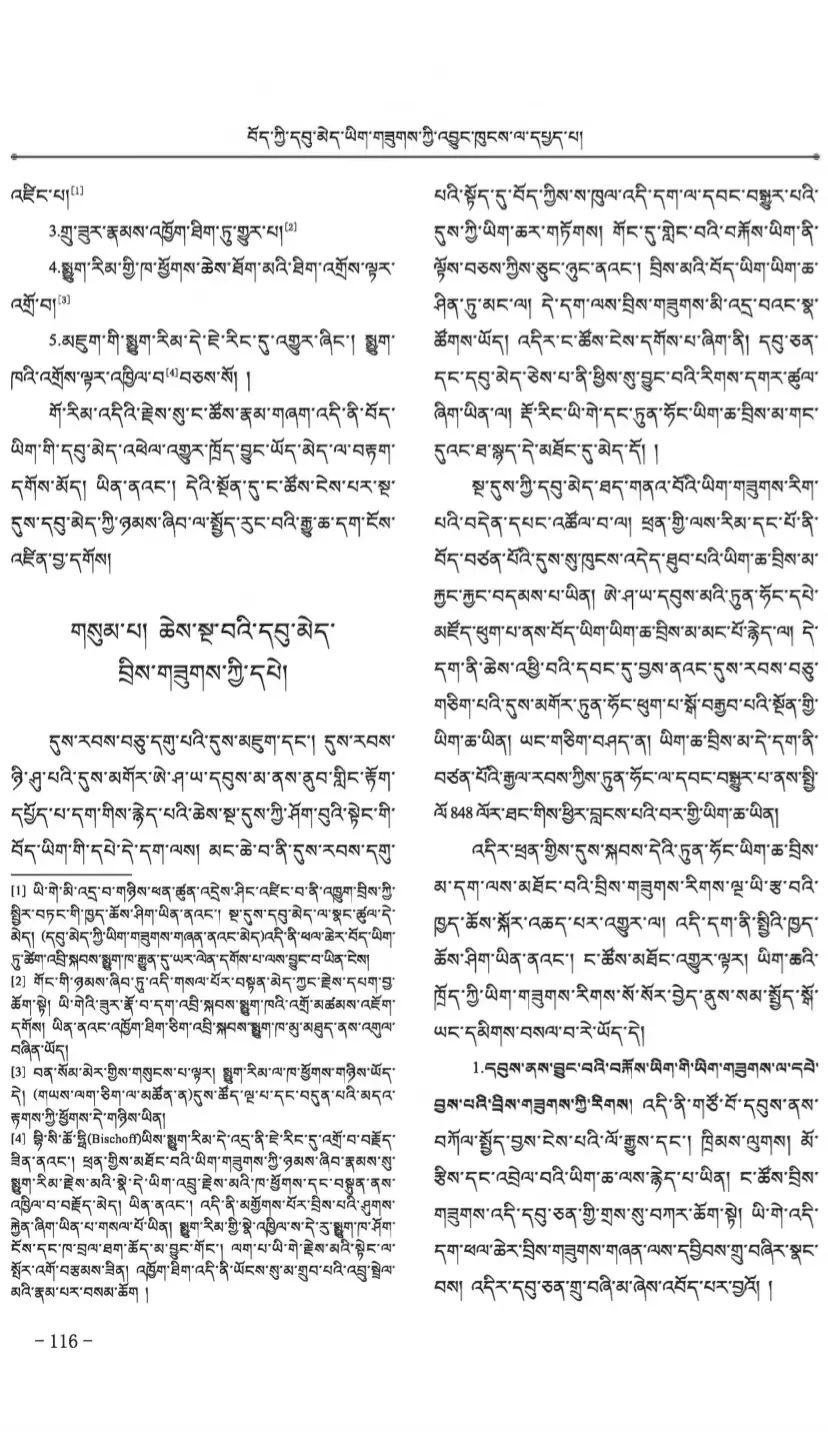 བོད་ཀྱི་དབུ་མེད་ཡིག་གཟུགས་ཀྱི་འབྱུང་ཁུངས་ལ་དཔྱད་པ།
འཛིང་པ།[1]
3.གྲུ་ཟུར་རྣམས་འཁྱོག་ཐིག་ཏུ་གྱུར་པ།[2]
4.སྨྱུག་རིམ་གྱི་ཁ་ཕྱོགས་ཆེས་ཐོག་མའི་ཐིག་འགྲོས་ལྟར་
འགྲོ་བ།[3]
5.མཇུག་གི་སྨྱུག་རིམ་དེ་ཇེ་རིང་དུ་འགྱུར་ཞིང་། སྨྱུག་
ཁའི་འགྲོས་ལྟར་འཁྱིལ་བ[4]བཅས་སོ། །
གོ་རིམ་འདིའི་རྗེས་སུ་ང་ཚོས་རྣམ་གཞག་འདི་ནི་བོད་
ཡིག་གི་དབུ་མེད་འཕེལ་འགྱུར་ཁྲོད་བྱུང་ཡོད་མེད་ལ་བརྟག་
དགོས་མོད། ཡིན་ནའང་། དེའི་སྔོན་དུ་ང་ཚོས་ངེས་པར་སྔ་
དུས་དབུ་མེད་ཀྱི་ཉམས་ཞིབ་ལ་སྤྱོད་རུང་བའི་རྒྱུ་ཆ་དག་ངོས་
འཛིན་བྱ་དགོས།
གསུམ་པ། ཆེས་སྔ་བའི་དབུ་མེད་
བྲིས་གཟུགས་ཀྱི་དཔེ།
དུས་རབས་བཅུ་དགུ་པའི་དུས་མཇུག་དང་། དུས་རབས་
ཉི་ཤུ་པའི་དུས་མགོར་ཨེ་ཤ་ཡ་དབུས་མ་ནས་ནུབ་གླིང་རྟོག་
དཔྱོད་པ་དག་གིས་རྙེད་པའི་ཆེས་སྔ་དུས་ཀྱི་ཤོག་བུའི་སྟེང་གི་
བོད་ཡིག་གི་དཔེ་དེ་དག་ལས། མང་ཆེ་བ་ནི་དུས་རབས་དགུ་
[1] ཡི་གེ་མི་འདྲ་བ་གཉིས་ཕན་ཚུན་འདྲེས་ཤིང་འཛིང་བ་ནི་འཁྱུག་བྲིས་ཀྱི་
སྤྱིར་བཏང་གི་ཁྱད་ཆོས་ཤིག་ཡིན་ནའང་། སྔ་དུས་དབུ་མེད་ལ་སྣང་ཚུལ་དེ་
མེད། (དབུ་མེད་ཀྱི་ཡིག་གཟུགས་གཞན་ནའང་མེད)འདི་ནི་ཕལ་ཆེར་བོད་ཡིག་
ཏུ་ཚེག་འབྲི་སྐབས་སྨྱུག་ཁ་རྒྱུན་དུ་ཡར་ལེན་དགོས་པ་ལས་བྱུང་བ་ཡིན་ངེས།
[2] གོང་གི་ཉམས་ཞིབ་ཏུ་འདི་གསལ་པོར་བསྟན་མེད་ཀྱང་རྗེས་དཔག་བྱ་
ཆོག་སྟེ། ཡི་གེའི་ཟུར་རྣོ་བ་དག་འབྲི་སྐབས་སྨྱུག་ཁའི་འགྲོ་མཚམས་འཇོག་
དགོས། ཡིན་ནའང་འཁྱོག་ཐིག་ཅིག་འབྲི་སྐབས་སྨྱུག་ཁ་མུ་མཐུད་ནས་འགུལ་
བཞིན་ཡོད།
[3] བན་སོམ་མེར་གྱིས་གསུངས་པ་ལྟར། སྨྱུག་རིམ་ལ་ཁ་ཕྱོགས་གཉིས་ཡོད་
དེ། (གཡས་ལག་ཅིག་ལ་མཚོན་ན)དུས་ཚོད་ལྔ་པ་དང་བདུན་པའི་མདའ་
རྟགས་ཀྱི་ཕྱོགས་དེ་གཉིས་ཡིན།
[4] བྷི་སི་ཆོ་ཧྥི(Bischoff)ཡིས་སྨྱུག་རིམ་དེ་འདྲ་ནི་ཇེ་རིང་དུ་འགྲོ་བ་བརྗོད་
ཟིན་ནའང་། ཕྲན་གྱིས་མཐོང་བའི་ཡིག་གཟུགས་ཀྱི་ཉམས་ཞིབ་རྣམས་སུ་
སྨྱུག་རིམ་རྗེས་མའི་སྣེ་དེ་ཡིག་འབྲུ་རྗེས་མའི་ཁ་ཕྱོགས་དང་བསྟུན་ནས་
འཁྱིལ་བ་བརྗོད་མེད། ཡིན་ནའང་། འདི་ནི་མགྱོགས་པོར་བྲིས་པའི་ཤུགས་
རྐྱེན་ཞིག་ཡིན་པ་གསལ་པོ་ཡིན། སྨྱུག་རིམ་གྱི་སྣེ་འཁྱིལ་ས་དེ་རུ་སྨྱུག་ཁ་ཤོག་
ངོས་དང་ཁ་བྲལ་ཐག་ཆོད་མ་བྱུང་གོང་། ལག་པ་ཡི་གེ་རྗེས་མའི་སྟེང་ལ་
སྤོར་འགོ་བརྩམས་ཟིན། འཁྱོག་ཐིག་འདི་ནི་ཡོངས་སུ་མ་གྲུབ་པའི་འབྲུ་སྦྲེལ་
མའི་རྣམ་པར་བསམ་ཆོག །
པའི་སྟོད་དུ་བོད་ཀྱིས་ས་ཁུལ་འདི་དག་ལ་དབང་བསྒྱུར་པའི་
དུས་ཀྱི་ཡིག་ཆར་གཏོགས། གོང་དུ་གླེང་བའི་བརྐོས་ཡིག་ནི་
ལྟོས་བཅས་ཀྱིས་ཅུང་ཉུང་ནའང་། བྲིས་མའི་བོད་ཡིག་ཡིག་ཆ་
ཤིན་ཏུ་མང་ལ། དེ་དག་ལས་བྲིས་གཟུགས་མི་འདྲ་བའང་སྣ་
ཚོགས་ཡོད། འདིར་ང་ཚོས་ངེས་དགོས་པ་ཞིག་ནི། དབུ་ཅན་
དང་དབུ་མེད་ཅེས་པ་ནི་ཕྱིས་སུ་བྱུང་བའི་རིགས་དགར་ཚུལ་
ཞིག་ཡིན་ལ། རྡོ་རིང་ཡི་གེ་དང་ཏུན་ཧོང་ཡིག་ཆ་བྲིས་མ་གང་
དུའང་ཐ་སྙད་དེ་མཐོང་དུ་མེད་དོ། །
སྔ་དུས་ཀྱི་དབུ་མེད་ཐད་གནའ་བོའི་ཡིག་གཟུགས་རིག་
པའི་བདེན་དཔང་འཚོལ་བ་ལ། ཕྲན་གྱི་ལས་རིམ་དང་པོ་ནི་
བོད་བཙན་པོའི་དུས་སུ་ཁུངས་འདེད་ཐུབ་པའི་ཡིག་ཆ་བྲིས་མ་
རྐྱང་རྐྱང་བདམས་པ་ཡིན། ཨེ་ཤ་ཡ་དབུས་མའི་ཏུན་ཧོང་དཔེ་
མཛོད་ཕུག་པ་ནས་བོད་ཡིག་ཡིག་ཆ་བྲིས་མ་མང་པོ་རྙེད་ལ། དེ་
དག་ནི་ཆེས་འཕྱི་བའི་དབང་དུ་བྱས་ནའང་དུས་རབས་བཅུ་
གཅིག་པའི་དུས་མགོར་ཏུན་ཧོང་ཕུག་པ་སྒོ་བརྒྱབ་པའི་སྔོན་གྱི་
ཡིག་ཆ་ཡིན། ཡང་གཅིག་བཤད་ན། ཡིག་ཆ་བྲིས་མ་དེ་དག་ནི་
བཙན་པོའི་རྒྱལ་རབས་ཀྱིས་ཏུན་ཧོང་ལ་དབང་བསྒྱུར་པ་ནས་སྤྱི་
ལོ་848 ལོར་ཐང་གིས་ཕྱིར་བླངས་པའི་བར་གྱི་ཡིག་ཆ་ཡིན།
འདིར་ཕྲན་གྱིས་དུས་སྐབས་དེའི་ཏུན་ཧོང་ཡིག་ཆ་བྲིས་
མ་དག་ལས་མཐོང་བའི་བྲིས་གཟུགས་རིགས་ལྔ་ཡི་རྩ་བའི་
ཁྱད་ཆོས་སྐོར་འཆད་པར་འགྱུར་ལ། འདི་དག་ནི་སྤྱིའི་ཁྱད་
ཆོས་ཤིག་ཡིན་ནའང་། ང་ཚོས་མཐོང་འགྱུར་ལྟར། ཡིག་ཆའི་
ཁྲོད་ཀྱི་ཡིག་གཟུགས་རིགས་སོ་སོར་བྱེད་ནུས་སམ་སྤྱོད་སྒོ་
ཡང་དམིགས་བསལ་བ་རེ་ཡོད་དེ།
1.དབུས་ནས་བྱུང་བའི་བརྐོས་ཡིག་གི་ཡིག་གཟུགས་ལ་དཔེ་
བྱས་པའི་བྲིས་གཟུགས་ཀྱི་རིགས། འདི་ནི་གཙོ་བོ་དབུས་ནས་
བཀོལ་སྤྱོད་བྱས་ངེས་པའི་ལོ་རྒྱུས་དང་། ཁྲིམས་ལུགས། མོ་
རྩིས་དང་འབྲེལ་བའི་ཡིག་ཆ་ལས་རྙེད་པ་ཡིན། ང་ཚོས་བྲིས་
གཟུགས་འདི་དབུ་ཅན་གྱི་གྲས་སུ་བཀར་ཆོག་སྟེ། ཡི་གེ་འདི་
དག་ཕལ་ཆེར་བྲིས་གཟུགས་གཞན་ལས་དབྱིབས་གྲུ་བཞིར་སྣང་
བས། འདིར་དབུ་ཅན་གྲུ་བཞི་མ་ཞེས་འབོད་པར་བྱའོ། །
– 116 –